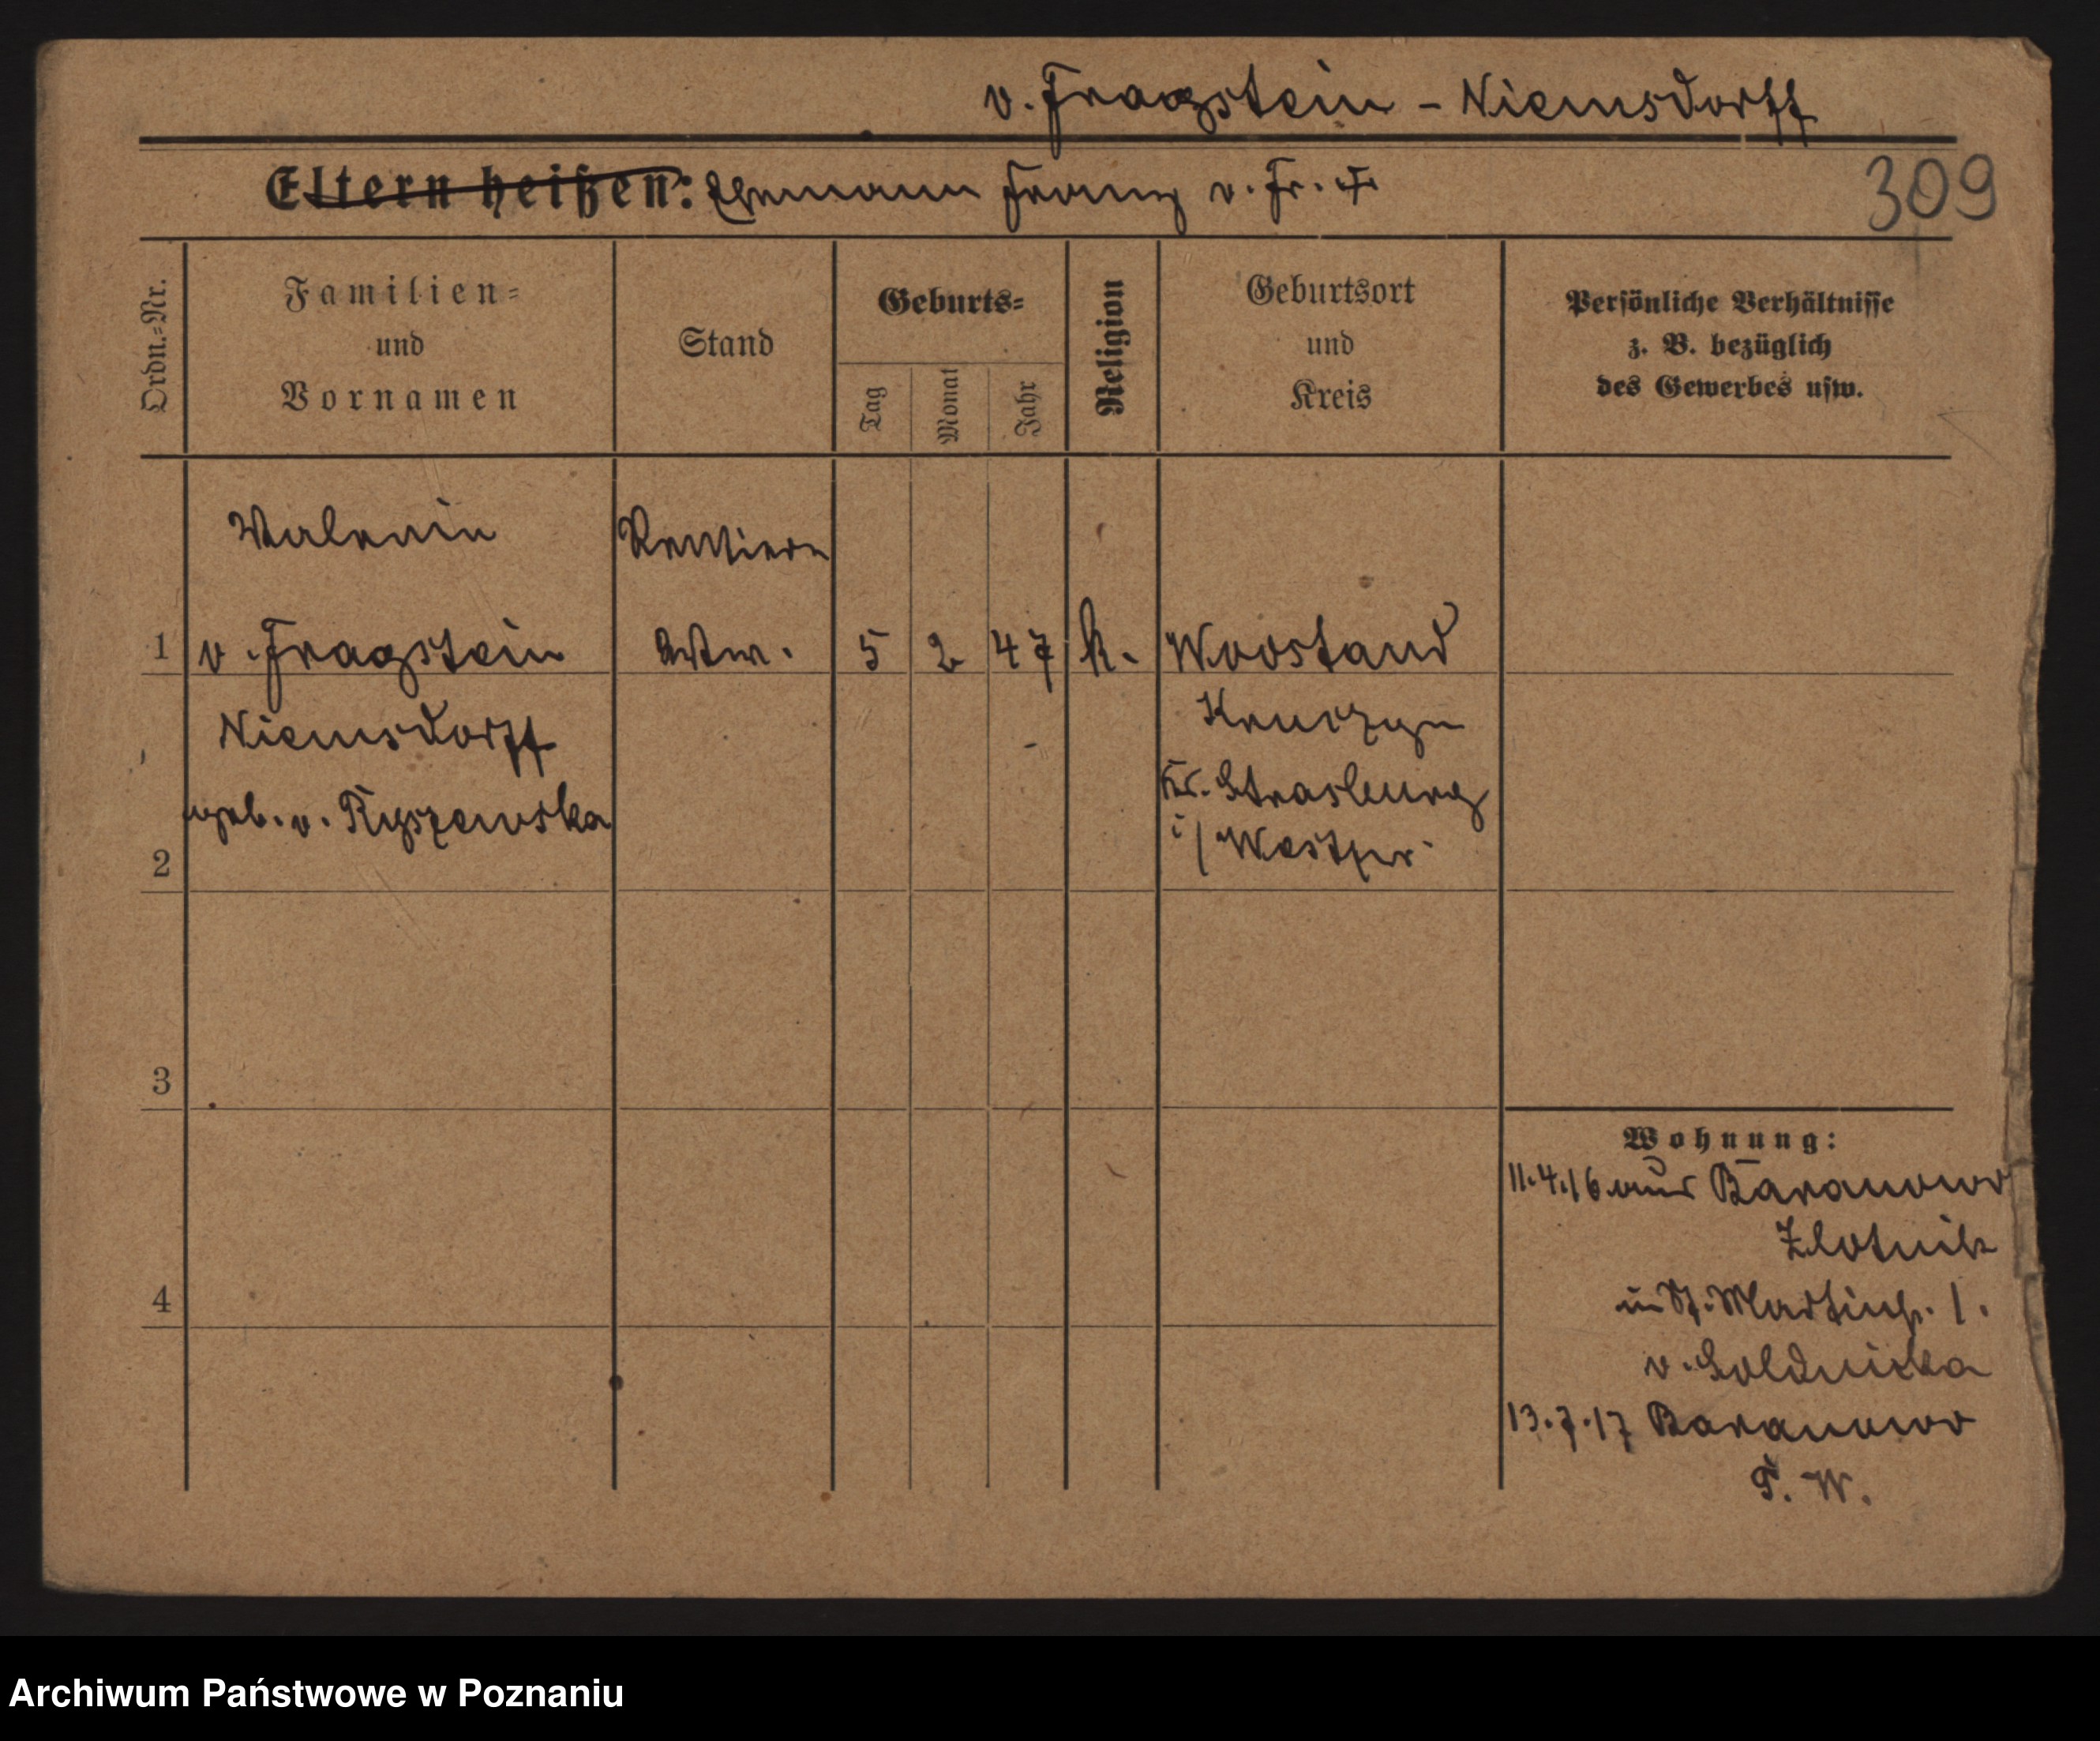 v. Fragstein - Niemsdorff
Eltern heißen: Ehemann Franz v. Fr. †
309
Ordn.=Nr.
Familien=
und
Vornamen
Stand
Geburts=
Tag
Monat
Jahr
Religion
Geburtsort
und
Kreis
Persönliche Verhältnisse
z. B. bezüglich
des Gewerbes usw.
Valerie Rentiere
1 v. Fragstein Wwe. 5 2 47 k.
Niemsdorff Kruszyn
geb. v. Ryszewska Kr. Strasburg
i/ Westpr.
2
3
4
Wohnung:
11.4.16 aus Baranowo
Zlotnik
n. St. Martinstr. 1.
13.7.17 Baranowo
P. W.
Archiwum Państwowe w Poznaniu